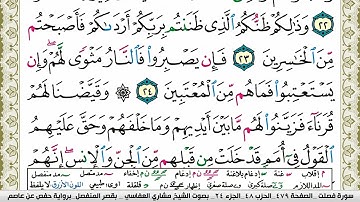 ٢٢ وَذَٰلِكُمْ ظَنُّكُمُ ٱلَّذِى ظَنَنتُم بِرَبِّكُمْ أَرْدَىٰكُمْ فَأَصْبَحْتُم
مِّنَ ٱلْخَٰسِرِينَ ٢٣ فَإِن يَصْبِرُوا۟ فَٱلنَّارُ مَثْوًى لَّهُمْ وَإِن
يَسْتَعْتِبُوا۟ فَمَا هُم مِّنَ ٱلْمُعْتَبِينَ ٢٤ ۞ وَقَيَّضْنَا لَهُمْ
قُرَنَآءَ فَزَيَّنُوا۟ لَهُم مَّا بَيْنَ أَيْدِيهِمْ وَمَا خَلْفَهُمْ وَحَقَّ عَلَيْهِمُ
ٱلْقَوْلُ فِىٓ أُمَمٍ قَدْ خَلَتْ مِن قَبْلِهِم مِّنَ ٱلْجِنِّ وَٱلْإِنسِ إِنَّهُمْ
سورة فصلت ٤٧٩ الحزب ٤٨ الجزء ٢٤ بصوت الشيخ مشاري العفاسي بقصر المنفصل برواية حفص عن عاصم